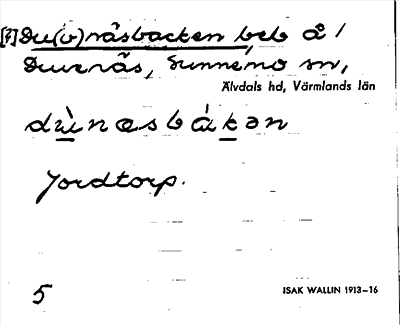 [?]Du(v)näsbacken beb å /
Duvenäs, Sunnemo sn,
Älvdals hd, Värmlands län
dùnæsbàkən
Jordtorp.
5
ISAK WALLIN 1913–16